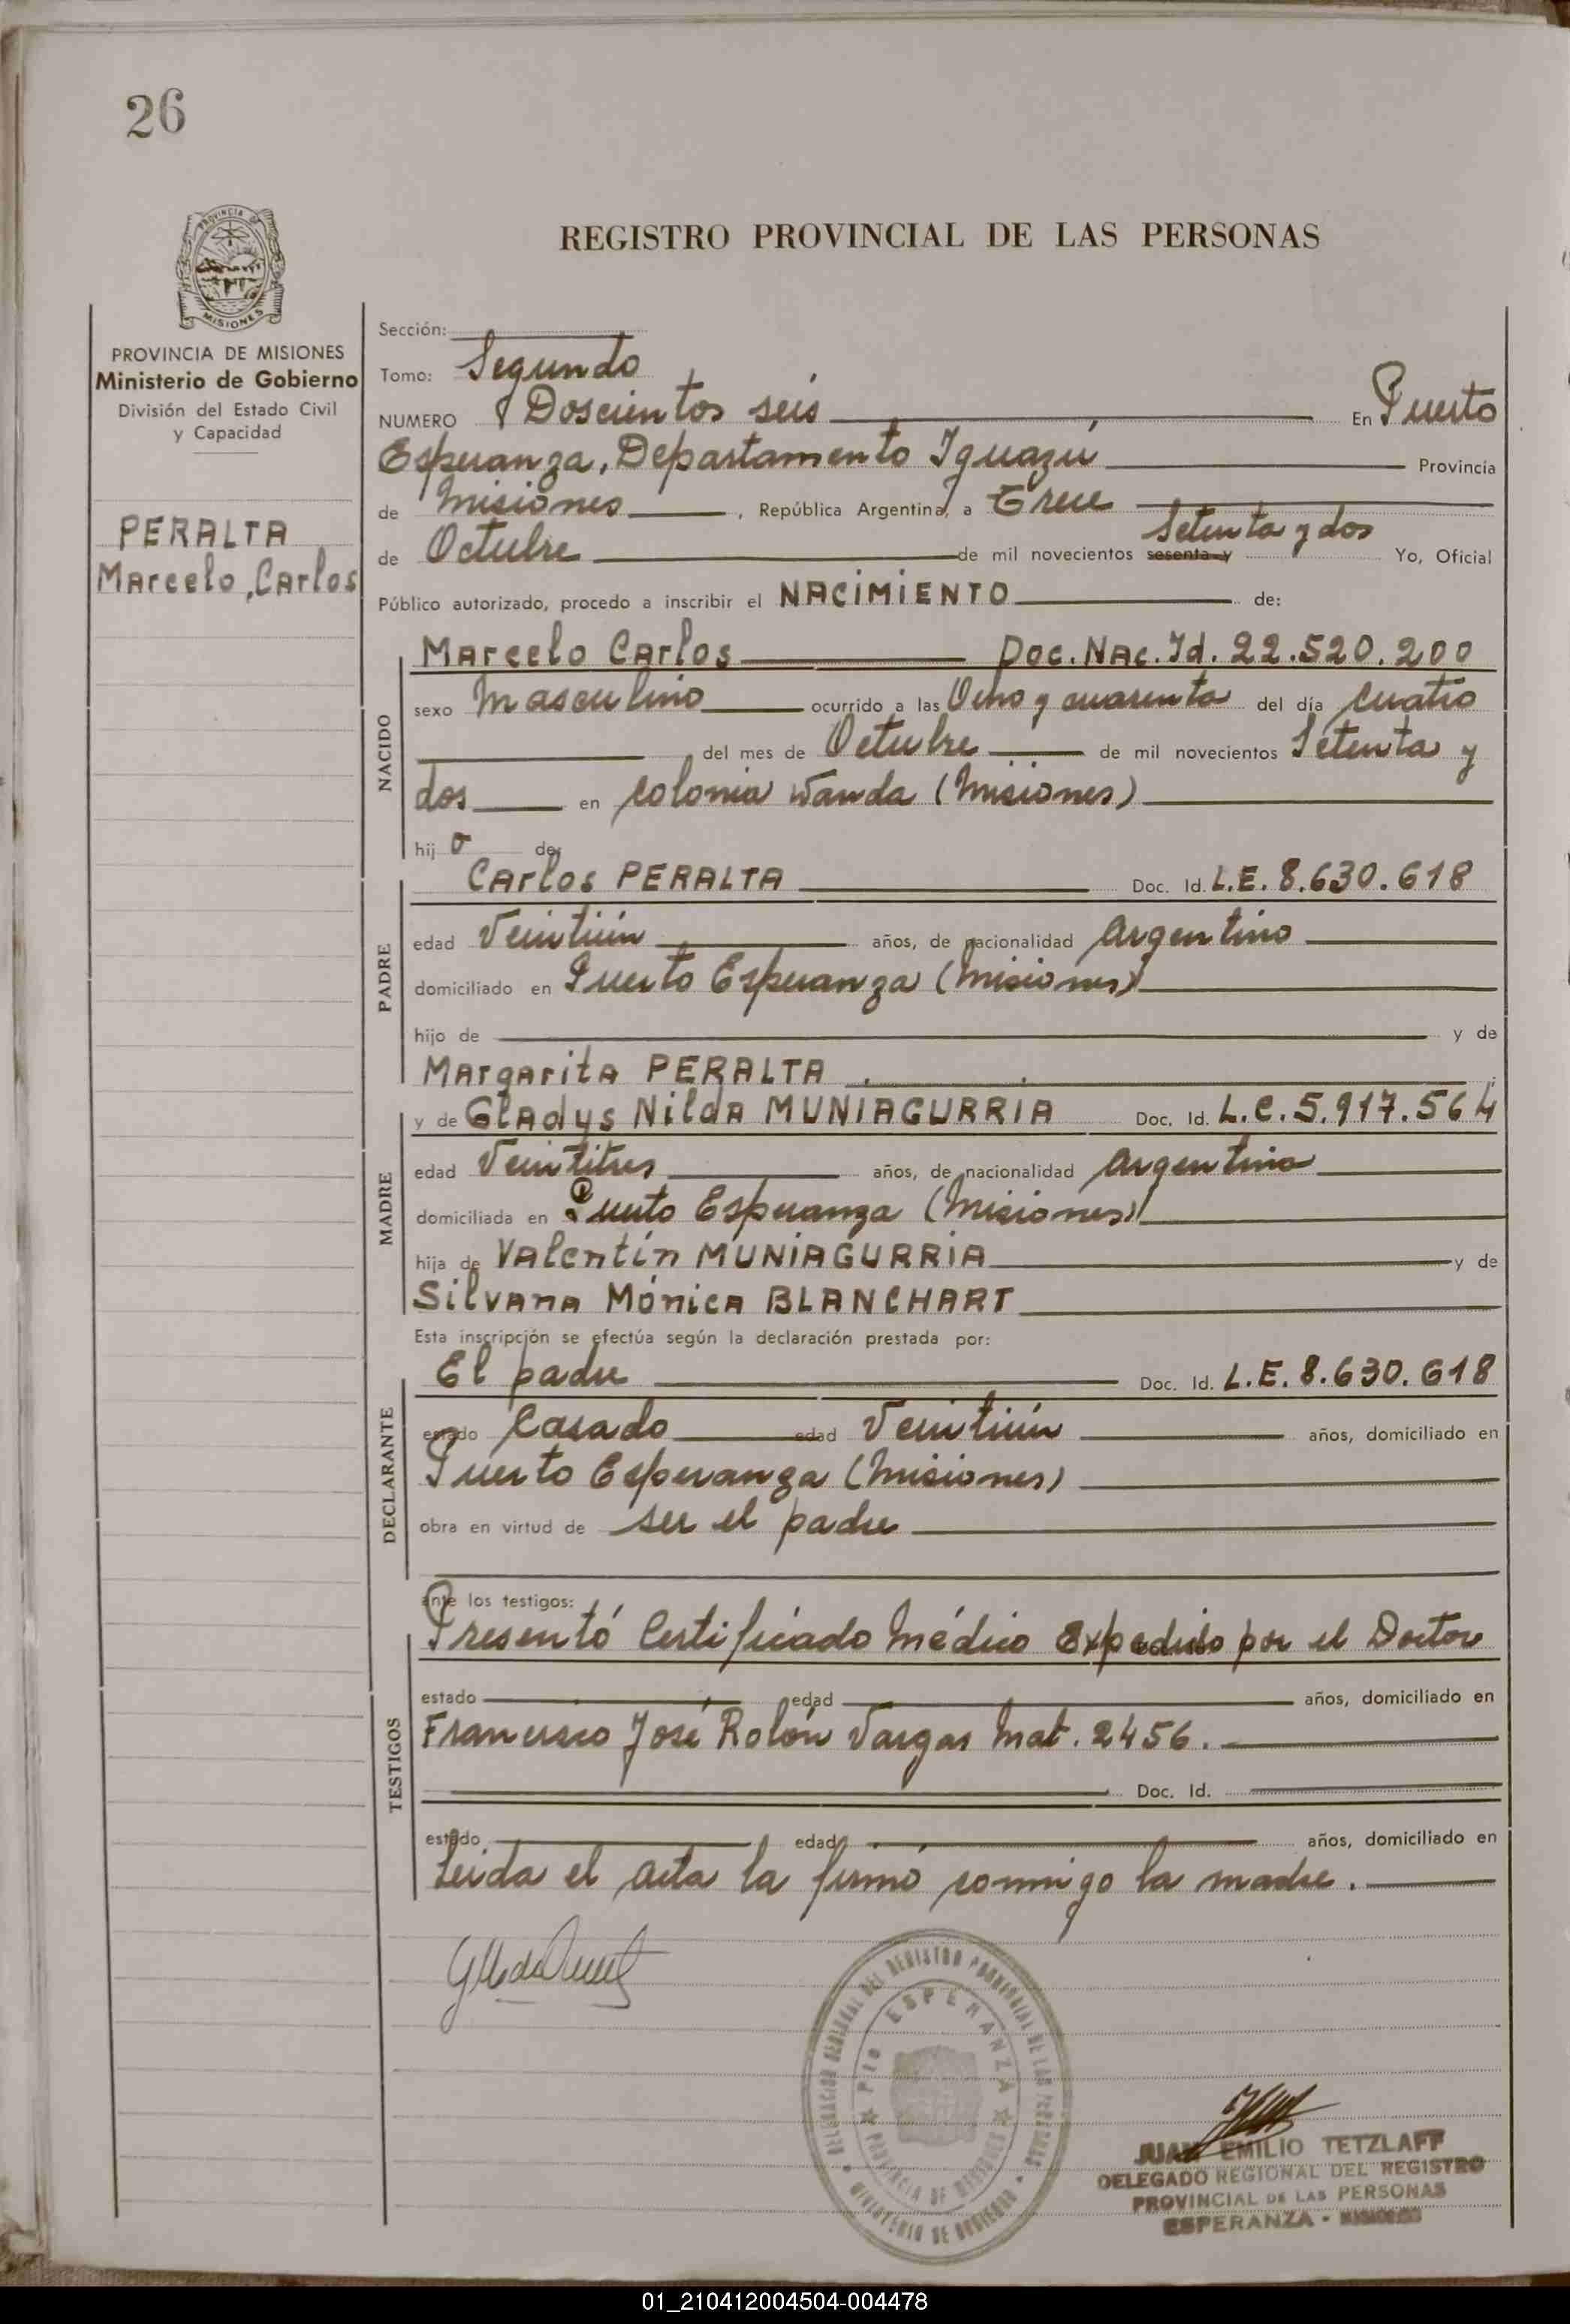 26
PROVINCIA DE
MISIONES
REGISTRO PROVINCIAL DE LAS PERSONAS
PROVINCIA DE MISIONES
Ministerio de Gobierno
División del Estado Civil
y Capacidad
PERALTA
Marcelo, Carlos
Sección:
Tomo: Segundo
NUMERO Doscientos seis En Puerto
Esperanza, Departamento Iguazú Provincia
de Misiones, República Argentina, a Trece
Setenta y dos
de Octubre de mil novecientos sesenta y Yo, Oficial
Público autorizado, procedo a inscribir el NACIMIENTO de:
NACIDO
Marcelo Carlos Doc. Nac. Id. 22.520.200
sexo Masculino ocurrido a las Ocho y cuarenta del día cuatro
del mes de Octubre de mil novecientos Setenta y
dos en colonia Wanda (Misiones)
hij o de
PADRE
Carlos PERALTA Doc. Id. L.E. 8.630.618
edad Veintiún años, de nacionalidad Argentino
domiciliado en Puerto Esperanza (Misiones)
hijo de y de
Margarita PERALTA
MADRE
y de Gladys Nilda MUNIAGURRIA Doc. Id. L.C. 5.917.564
edad Veintitres años, de nacionalidad Argentina
domiciliada en Puerto Esperanza (Misiones)
hija de Valentín MUNIAGURRIA y de
Silvana Mónica BLANCHART
Esta inscripción se efectúa según la declaración prestada por:
DECLARANTE
El padre Doc. Id. L.E. 8.630.618
estado Casado edad Veintiún años, domiciliado en
Puerto Esperanza (Misiones)
obra en virtud de ser el padre
ante los testigos:
TESTIGOS
Presentó Certificado Médico Expedido por el Doctor
estado edad años, domiciliado en
Francisco José Rolón Vargas Mat. 2456.
Doc. Id.
estado edad años, domiciliado en
Leida el acta la firmó conmigo la madre.
DELEGACION REGIONAL DEL REGISTRO PROVINCIAL DE LAS PERSONAS
MINISTERIO DE GOBIERNO
PTO ESPERANZA
PROVINCIA DE MISIONES
JUAN EMILIO TETZLAFF
DELEGADO REGIONAL DEL REGISTRO
PROVINCIAL DE LAS PERSONAS
ESPERANZA - MISIONES
01_210412004504-004478